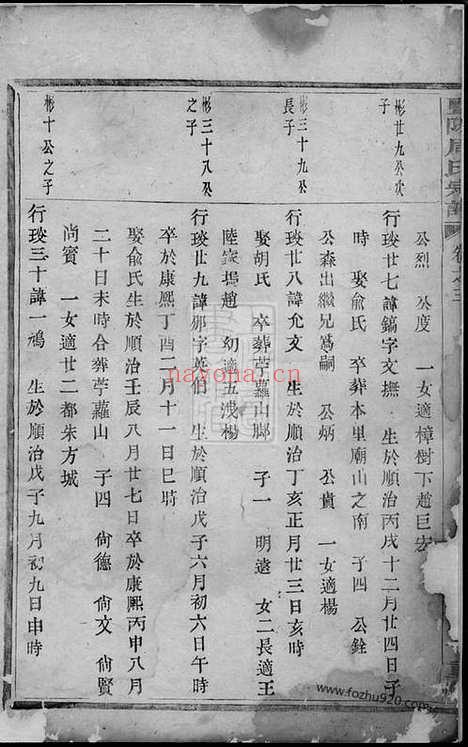 暨陽周氏宗譜 卷之三
公烈 公度 一女適樟樹下趙巨宏
彬廿九公次子
行琰廿七諱鎬字文撫 生於順治丙戌十二月廿四日子
時 娶俞氏 卒葬本里廟山之南 子四 公銓
公森出繼兄為嗣 公炳 公貴 一女適楊
彬三十九公長子
行琰廿八諱允文 生於順治丁亥正月廿三日亥時
娶胡氏 卒葬苧蘿山脚 子一 明遠 女二長適王
陸家塢趙 幼適五浅楊
彬三十八公之子
行琰廿九諱郊字英伯 生於順治戊子六月初六日午時
卒於康熙丁酉二月十一日巳時
娶俞氏生於順治壬辰八月廿七日卒於康熙丙申八月
二十日未時合葬苧蘿山 子四 尙德 尙文 尙賢
尚賓 一女適廿二都朱方城
彬十公之子
行琰三十諱一鴻 生於順治戊子九月初九日申時
nayona.cn
www.fozhu920.com